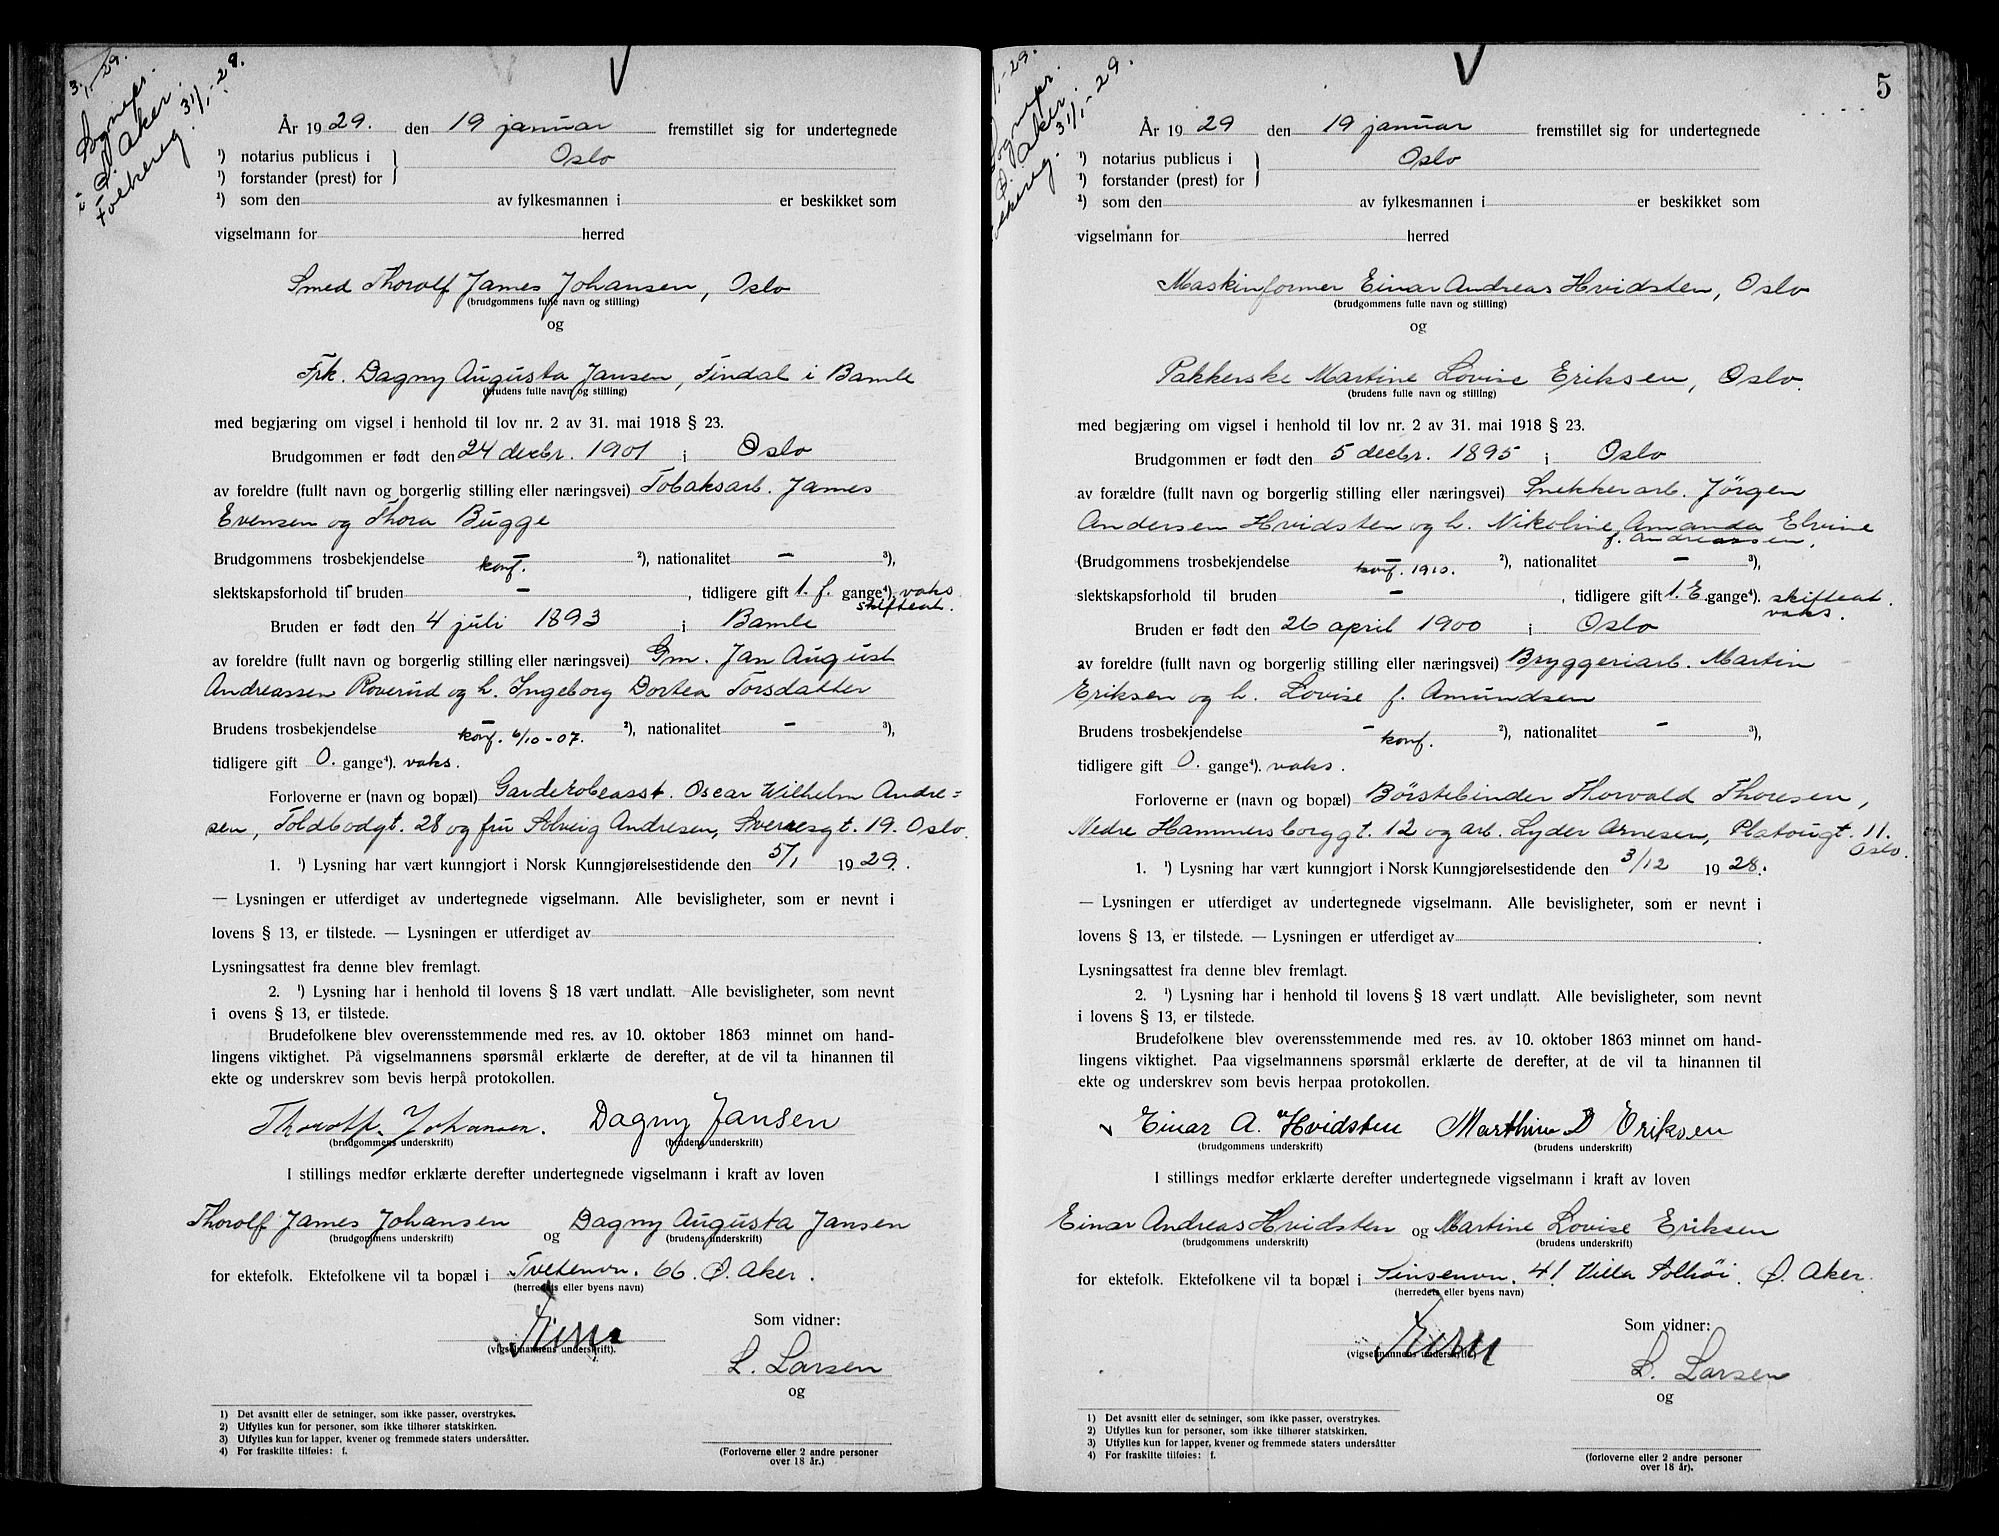 3/1 - 29.
Sognepr.
i Ø. Aker.
Folkereg. 31/1 - 29.
År 1929. den 19 januar fremstillet sig for undertegnede
¹) notarius publicus i } Oslo
¹) forstander (prest) for
¹) som den av fylkesmannen i er beskikket som
vigselmann for herred
Smed Thorolf James Johansen, Oslo
(brudgommens fulle navn og stilling)
og
Frk. Dagny Augusta Jansen, Findal i Bamle
(brudens fulle navn og stilling)
med begjæring om vigsel i henhold til lov nr. 2 av 31. mai 1918 § 23.
Brudgommen er født den 24 decbr. 1901 i Oslo
av foreldre (fullt navn og borgerlig stilling eller næringsvei) Tobaksarb. James
Evensen og Thora Bugge
Brudgommens trosbekjendelse – konf. ²), nationalitet – ³),
slektskapsforhold til bruden – , tidligere gift 1. f. gange⁴). vaks
skifteat.
Bruden er født den 4 juli 1893 i Bamle
av foreldre (fullt navn og borgerlig stilling eller næringsvei) Gm. Jan August
Andreassen Roverud og h. Ingeborg Dortea Torsdatter
Brudens trosbekjendelse – konf. 6/10 - 07. ²), nationalitet – ³),
tidligere gift 0. gange⁴). vaks.
Forloverne er (navn og bopæl) Garderobeasst. Oscar Wilhelm Andre=
sen, Toldbodgt. 28 og fru Solveig Andresen, Sverresgt. 19. Oslo.
1. ¹) Lysning har vært kunngjort i Norsk Kunngjørelsestidende den 5/1 1929.
— Lysningen er utferdiget av undertegnede vigselmann. Alle bevisligheter, som er nevnt i
lovens § 13, er tilstede. — Lysningen er utferdiget av
Lysningsattest fra denne blev fremlagt.
2. ¹) Lysning har i henhold til lovens § 18 vært undlatt. Alle bevisligheter, som nevnt
i ovens § 13, er tilstede.
Brudefolkene blev overensstemmende med res. av 10. oktober 1863 minnet om hand-
lingens viktighet. På vigselmannens spørsmål erklærte de derefter, at de vil ta hinannen til
ekte og underskrev som bevis herpå protokollen.
Thorolf Johansen. Dagny Jansen
(brudgommens underskrift) (brudens underskrift)
I stillings medfør erklærte derefter undertegnede vigselmann i kraft av loven
Thorolf James Johansen og Dagny Augusta Jansen
(brudgommens underskrift) (brudens underskrift)
for ektefolk. Ektefolkene vil ta bopæl i Tvetenvn. 66. Ø. Aker.
(herredets eller byens navn)
Som vidner:
(vigselmannens underskrift).
L. Larsen
og
1) Det avsnitt eller de setninger, som ikke passer, overstrykes.
2) Utfylles kun for personer, som ikke tilhører statskirken.
3) Utfylles kun for lapper, kvener og fremmede staters undersåtter.
4) For fraskilte tilføies: f.
(Forloverne eller 2 andre personer
over 18 år.)
5
/1 - 29.
Sognepr.
Ø. Aker.
Folkereg. 31/1 - 29.
År 1929 den 19 januar fremstillet sig for undertegnede
¹) notarius publicus i } Oslo
¹) forstander (prest) for
¹) som den av fylkesmannen i er beskikket som
vigselmann for herred
Maskinformer Einar Andreas Hvidsten, Oslo
(brudgommens fulle navn og stilling)
og
Pakkerske Martine Lovise Eriksen, Oslo.
(brudens fulle navn og stilling)
med begjæring om vigsel i henhold til lov nr. 2 av 31. mai 1918 § 23.
Brudgommen er født den 5 decbr. 1895 i Oslo
av forældre (fullt navn og borgerlig stilling eller næringsvei) Snekkerarb. Jörgen
Andersen Hvidsten og h. Nikoline Amanda Elvine
f. Andreassen,
(Brudgommens trosbekjendelse – konf. 1910. ²), nationalitet – ³),
slektskapsforhold til bruden – , tidligere gift 1. E. gange⁴). skifteat.
vaks.
Bruden er født den 26 april 1900 i Oslo
av foreldre (fullt navn og borgerlig stilling eller næringsvei) Bryggeriarb. Martin
Eriksen og h. Lovise f. Amundsen
Brudens trosbekjendelse – konf. ²), nationalitet – ³),
tidligere gift 0. gange⁴). vaks.
Forloverne er (navn og bopæl) Börstebinder Thorvald Thoresen,
Nedre Hammersborggt. 12 og arb. Lyder Arnesen, Platougt. 11.
Oslo.
1. ¹) Lysning har vært kunngjort i Norsk Kunngjørelsestidende den 3/12 1928.
— Lysningen er utferdiget av undertegnede vigselmann. Alle bevisligheter, som er nevnt i
lovens § 13, er tilstede. — Lysningen er utferdiget av
Lysningsattest fra denne blev fremlagt.
2. ¹) Lysning har i henhold til lovens § 18 vært undlatt. Alle bevisligheter, som nevnt
i lovens § 13, er tilstede.
Brudefolkene blev overensstemmende med res. av 10. oktober 1863 minnet om hand-
lingens viktighet. Paa vigselmannens spørsmål erklærte de derefter, at de vil ta hinannen til
ekte og underskrev som bevis herpaa protokollen.
Einar A. Hvidsten Marthine L Eriksen
(brudgommens underskrift) (brudens underskrift)
I stillings medfør erklærte derefter undertegnede vigselmann i kraft av loven
Einar Andreas Hvidsten og Martine Lovise Eriksen
(brudgommens underskrift) (brudens underskrift)
for ektefolk. Ektefolkene vil ta bopæl i Sinsenvn. 41 Villa Solhöi. Ø. Aker.
(herredets eller byens navn)
Som vidner:
(vigselmannens underskrift)
L. Larsen
og
1) Det avsnitt eller de setninger, som ikke passer, overstrykes.
2) Utfylles kun for personer, som ikke tilhører statskirken.
3) Utfylles kun for lapper, kvener og fremmede staters undersåtter
4) For fraskilte tilføies: f.
(forloverne eller 2 andre personer
over 18 år).